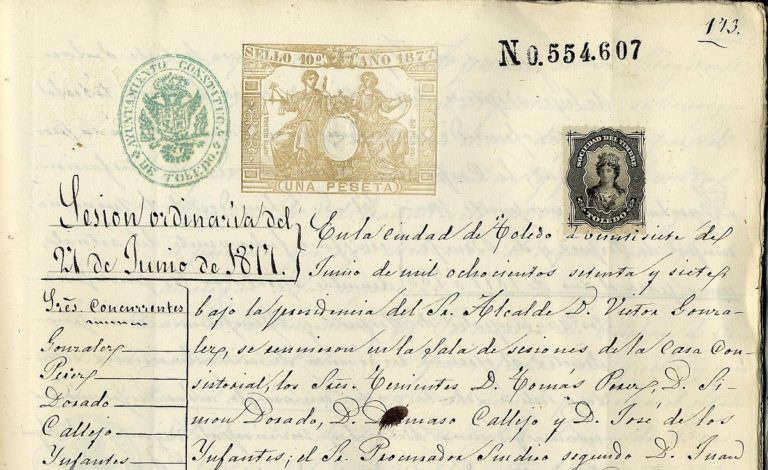 173.
No.554.607
SELLO 10º AÑO 1877
UNA PESETA
AYUNTAMIENTO CONSTITUCL.
DE TOLEDO
SOCIEDAD DEL TIMBRE
TOLEDO
Sesion ordinaria del
27 de Junio de 1877.
En la ciudad de Toledo a veintisiete de
Junio de mil ochocientos setenta y siete,
Sres. Concurrentes
Gonzalez
Perez
Dorado
Callejo
Ynfantes
bajo la presidencia del Sr. Alcalde D. Victor Gonza-
lez, se reunieron en la sala de sesiones de la Casa Con-
sistorial, los Sres. Tenientes D. Tomas Perez, D. Si-
mon Dorado, D. Damaso Callejo y D. José de los
Ynfantes; el Sr. Procurador Sindico segundo D. Juan